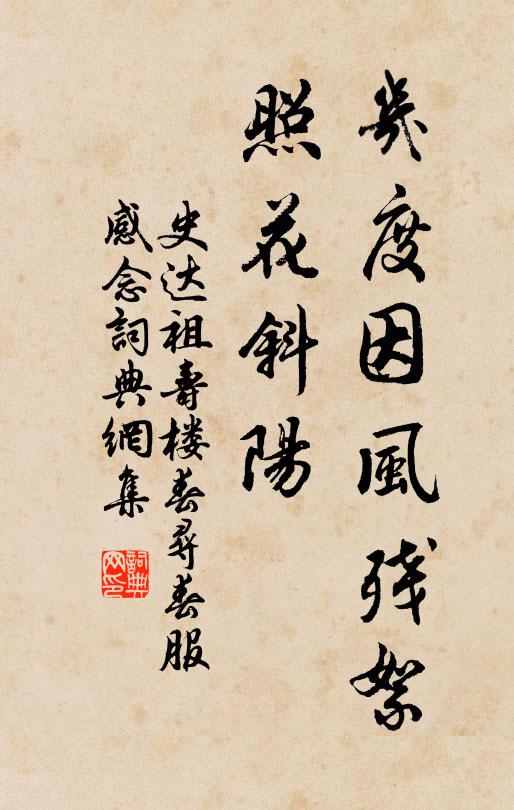 幾度因風残絮
照花斜陽
史达祖壽楼春尋春服
感念詞典網集
詞典
网印